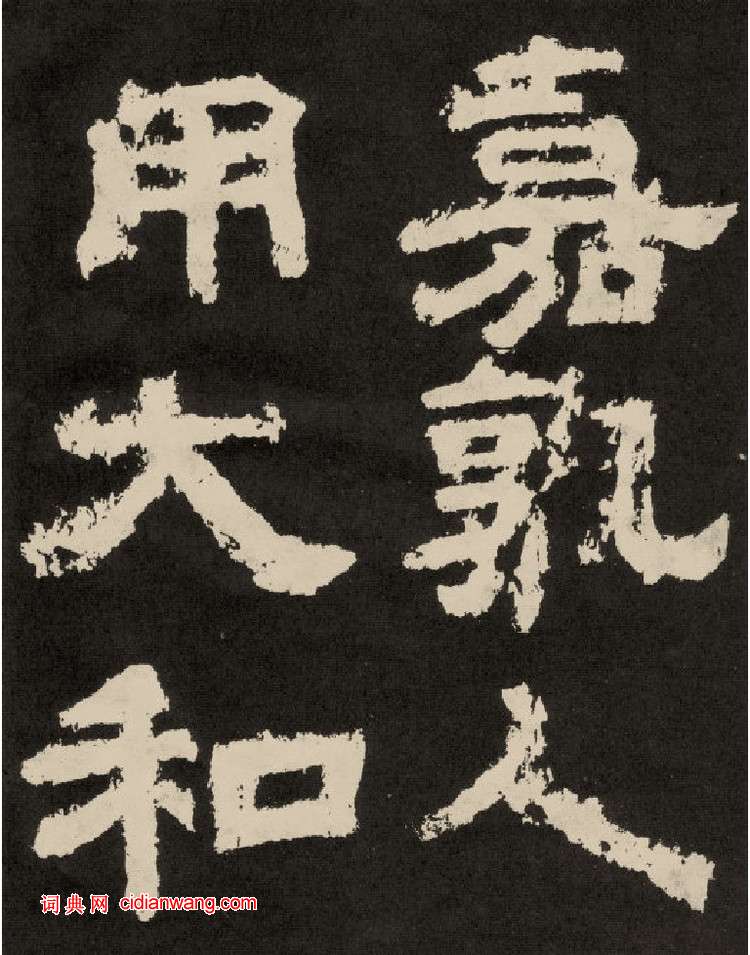 嘉孰人
用大和
词典网 cidianwang.com